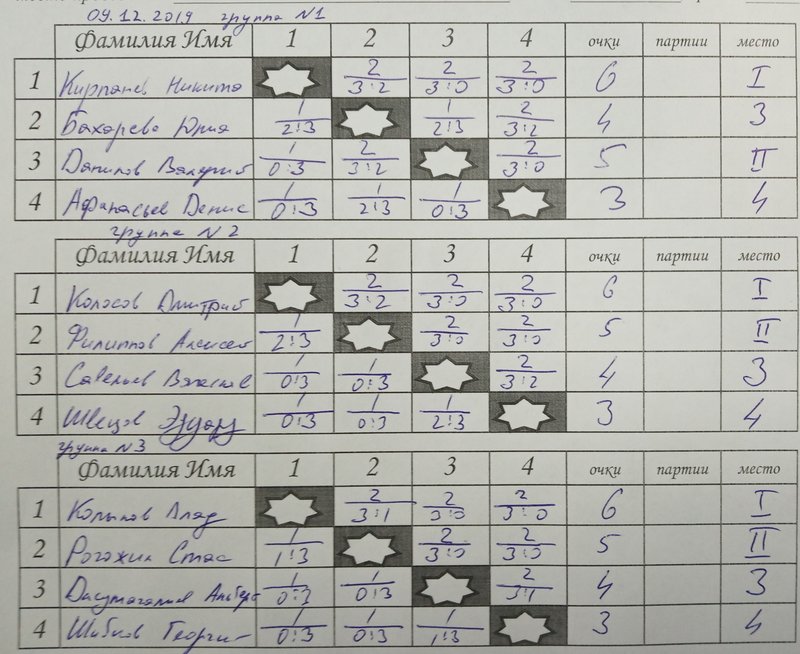 09.12.2019 группа N1
Фамилия Имя 1 2 3 4 очки партии место
1 Кирпачев Никита 2 3:2 2 3:0 2 3:0 6 I
2 Бахарева Юлия 1 2:3 1 2:3 2 3:2 4 3
3 Данилов Валерий 1 0:3 2 3:2 2 3:0 5 II
4 Афанасьев Денис 1 0:3 1 2:3 1 0:3 3 4
группа N2
Фамилия Имя 1 2 3 4 очки партии место
1 Колосов Дмитрий 2 3:2 2 3:0 2 3:0 6 I
2 Филиппов Алексей 1 2:3 2 3:0 2 3:0 5 II
3 Савельев Вячеслав 1 0:3 1 0:3 2 3:2 4 3
4 Швецов Эдуард 1 0:3 1 0:3 1 2:3 3 4
группа N3
Фамилия Имя 1 2 3 4 очки партии место
1 Копылов Влад 2 3:1 2 3:0 2 3:0 6 I
2 Рогожин Стас 1 1:3 2 3:0 2 3:0 5 II
3 1 0:3 1 0:3 2 3:1 4 3
4 Георгий 1 0:3 1 0:3 1 1:3 3 4